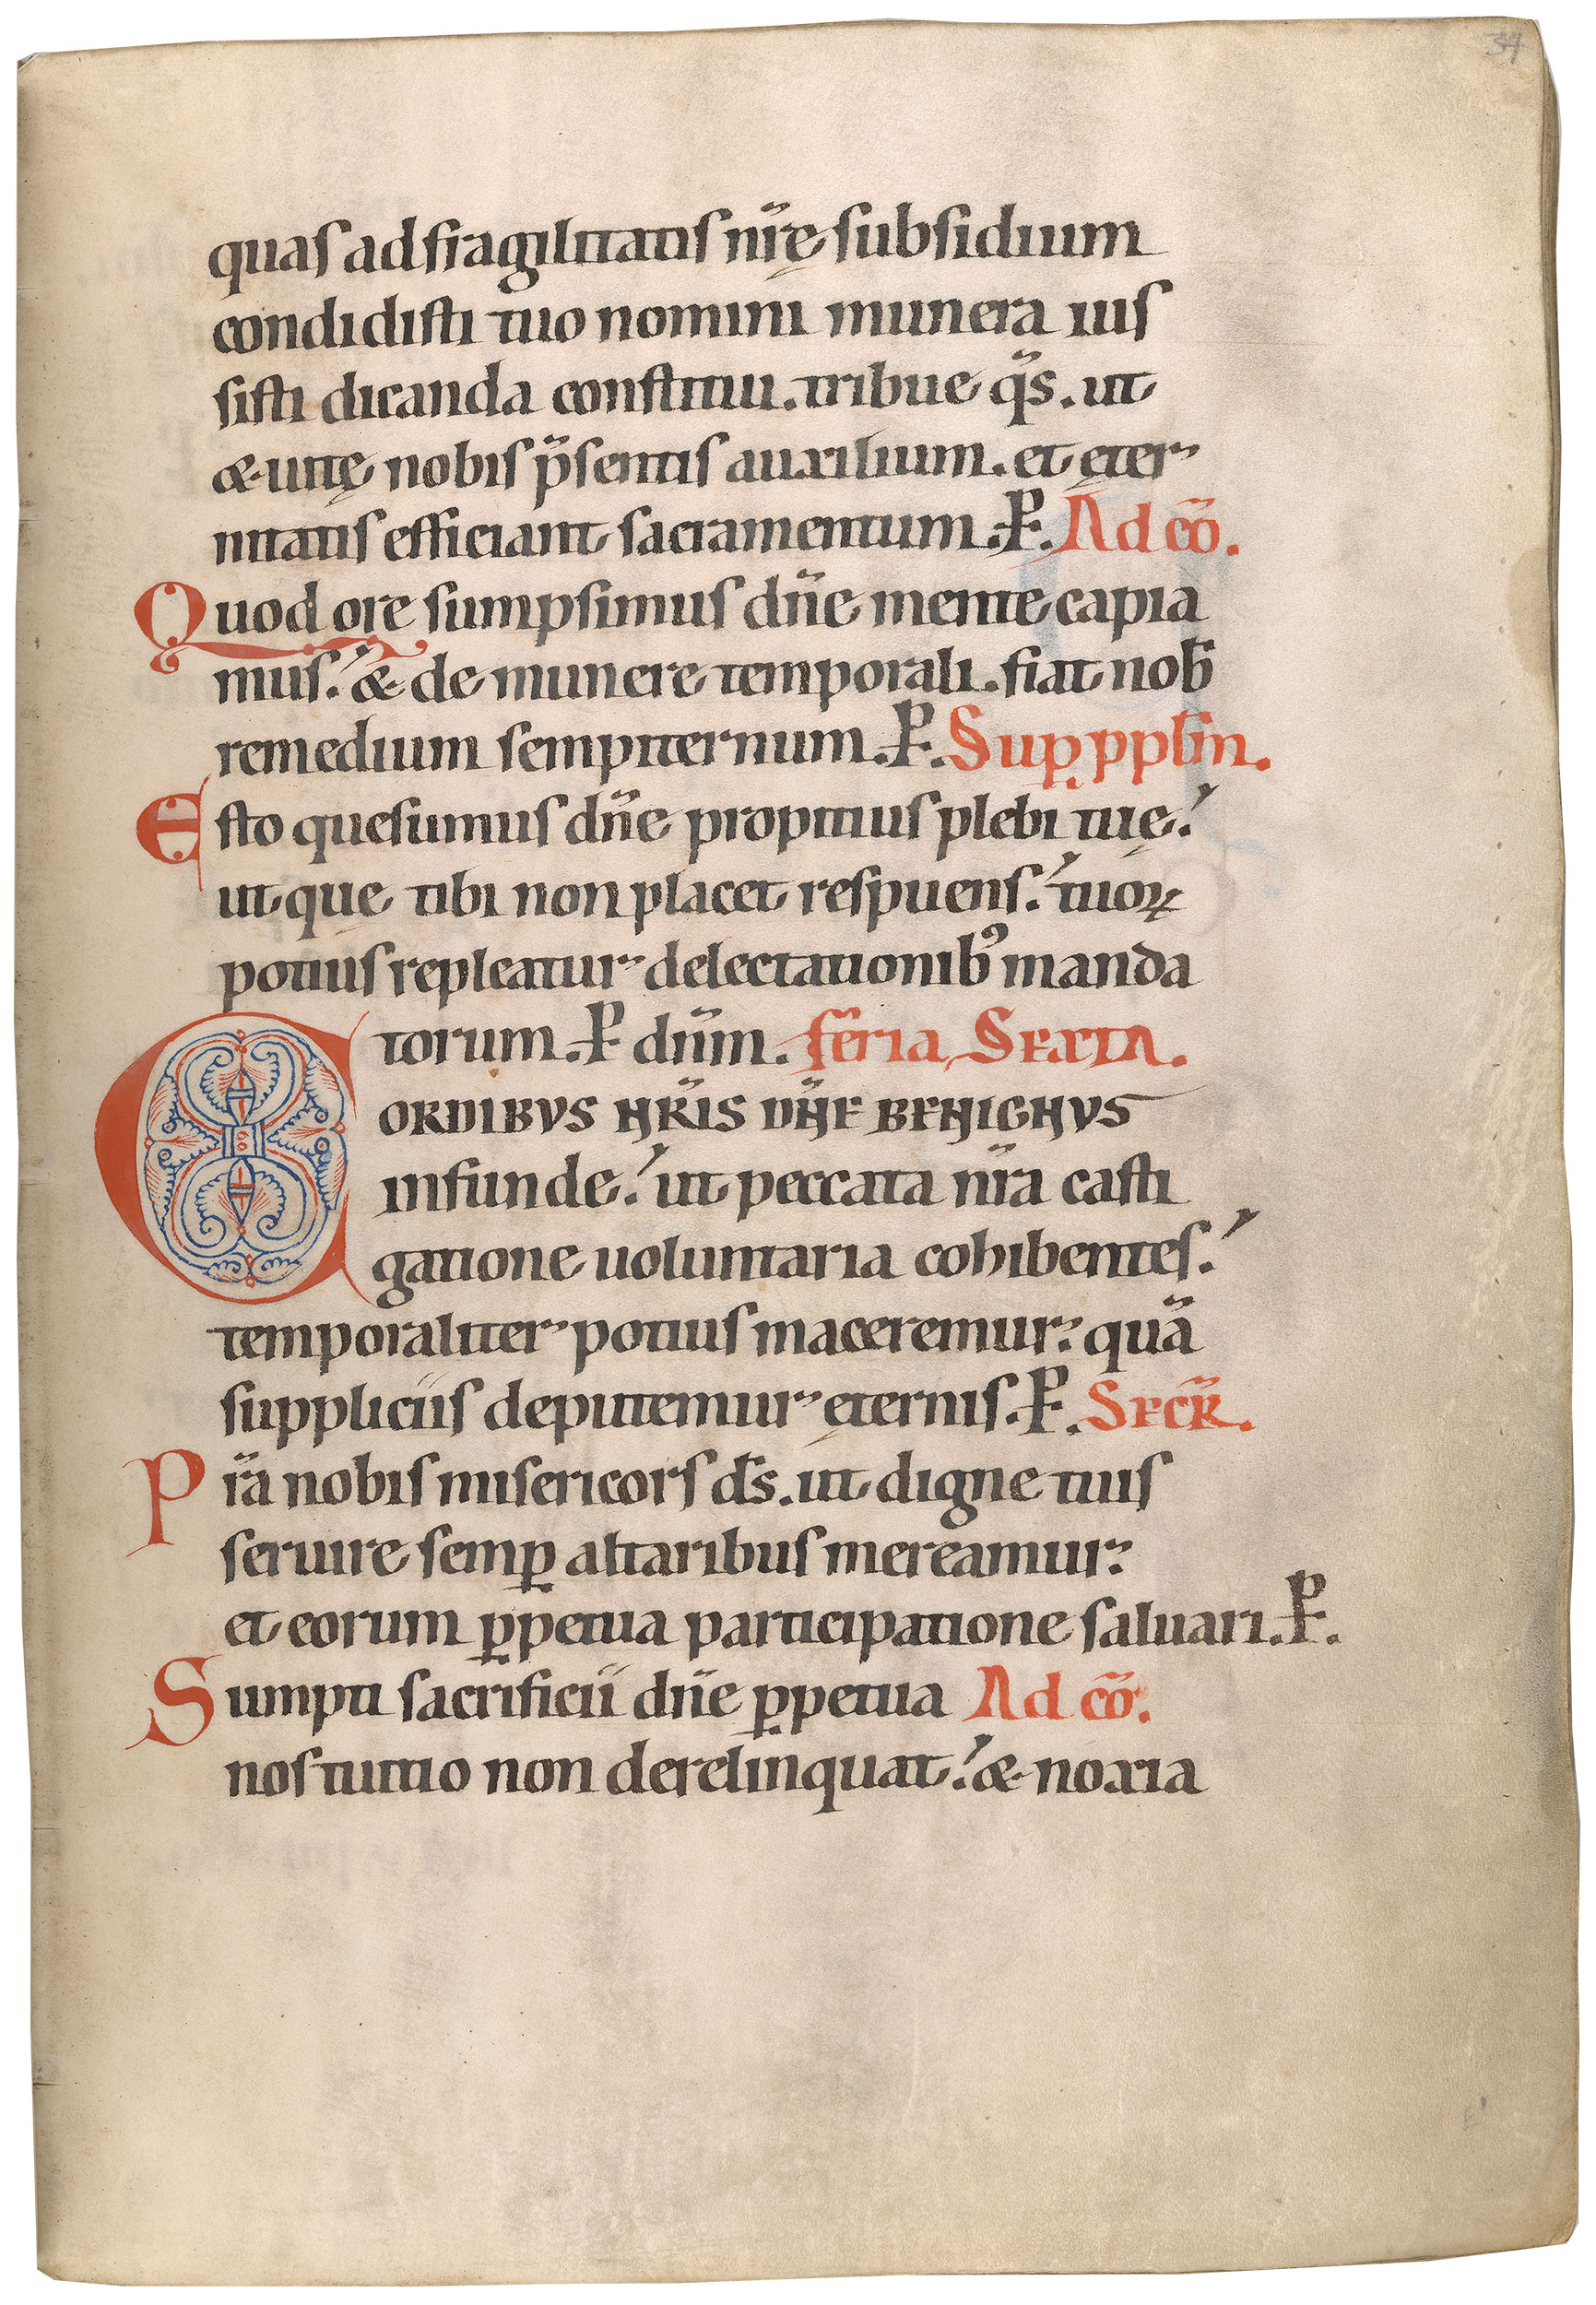 34
quas ad fragilitatis nr̃ę subsidium
condidisti tuo nomini munera ius
sisti dicanda constitui. tribue qs̃. ut
& uitę nobis p̃sentis auxilium. et ęter
nitatis efficiant sacramentum. P̶. Ad cõ.
Quod ore sumpsimus dñe mente capia
mus. & de munere temporali. fiat nob̄
remedium sempiternum. P̶. Suꝑ pplm̄.
Esto quesumus dñe propitius plebi tuę.
ut quę tibi non placet respuens. tuoꝝ
potius repleatur delectationibꝰ manda
torum. P̶ dñm. feria Sexta.
CORDIBVS NR̃IS DÑE BENIGNVS
infunde. ut peccata nr̃a casti
gatione uoluntaria cohibentes.
temporaliter potius maceremur. quã
suppliciis deputemur ęternis. P̶. SECR̃.
Pr̃a nobis misericors ds̄. ut digne tuis
seruire semꝑ altaribus mereamur.
et eorum ꝑpetua participatione saluari. P̶.
Sumpti sacrificii dñe ꝑpetua Ad cõ.
nos tuitio non derelinquat. & noxia